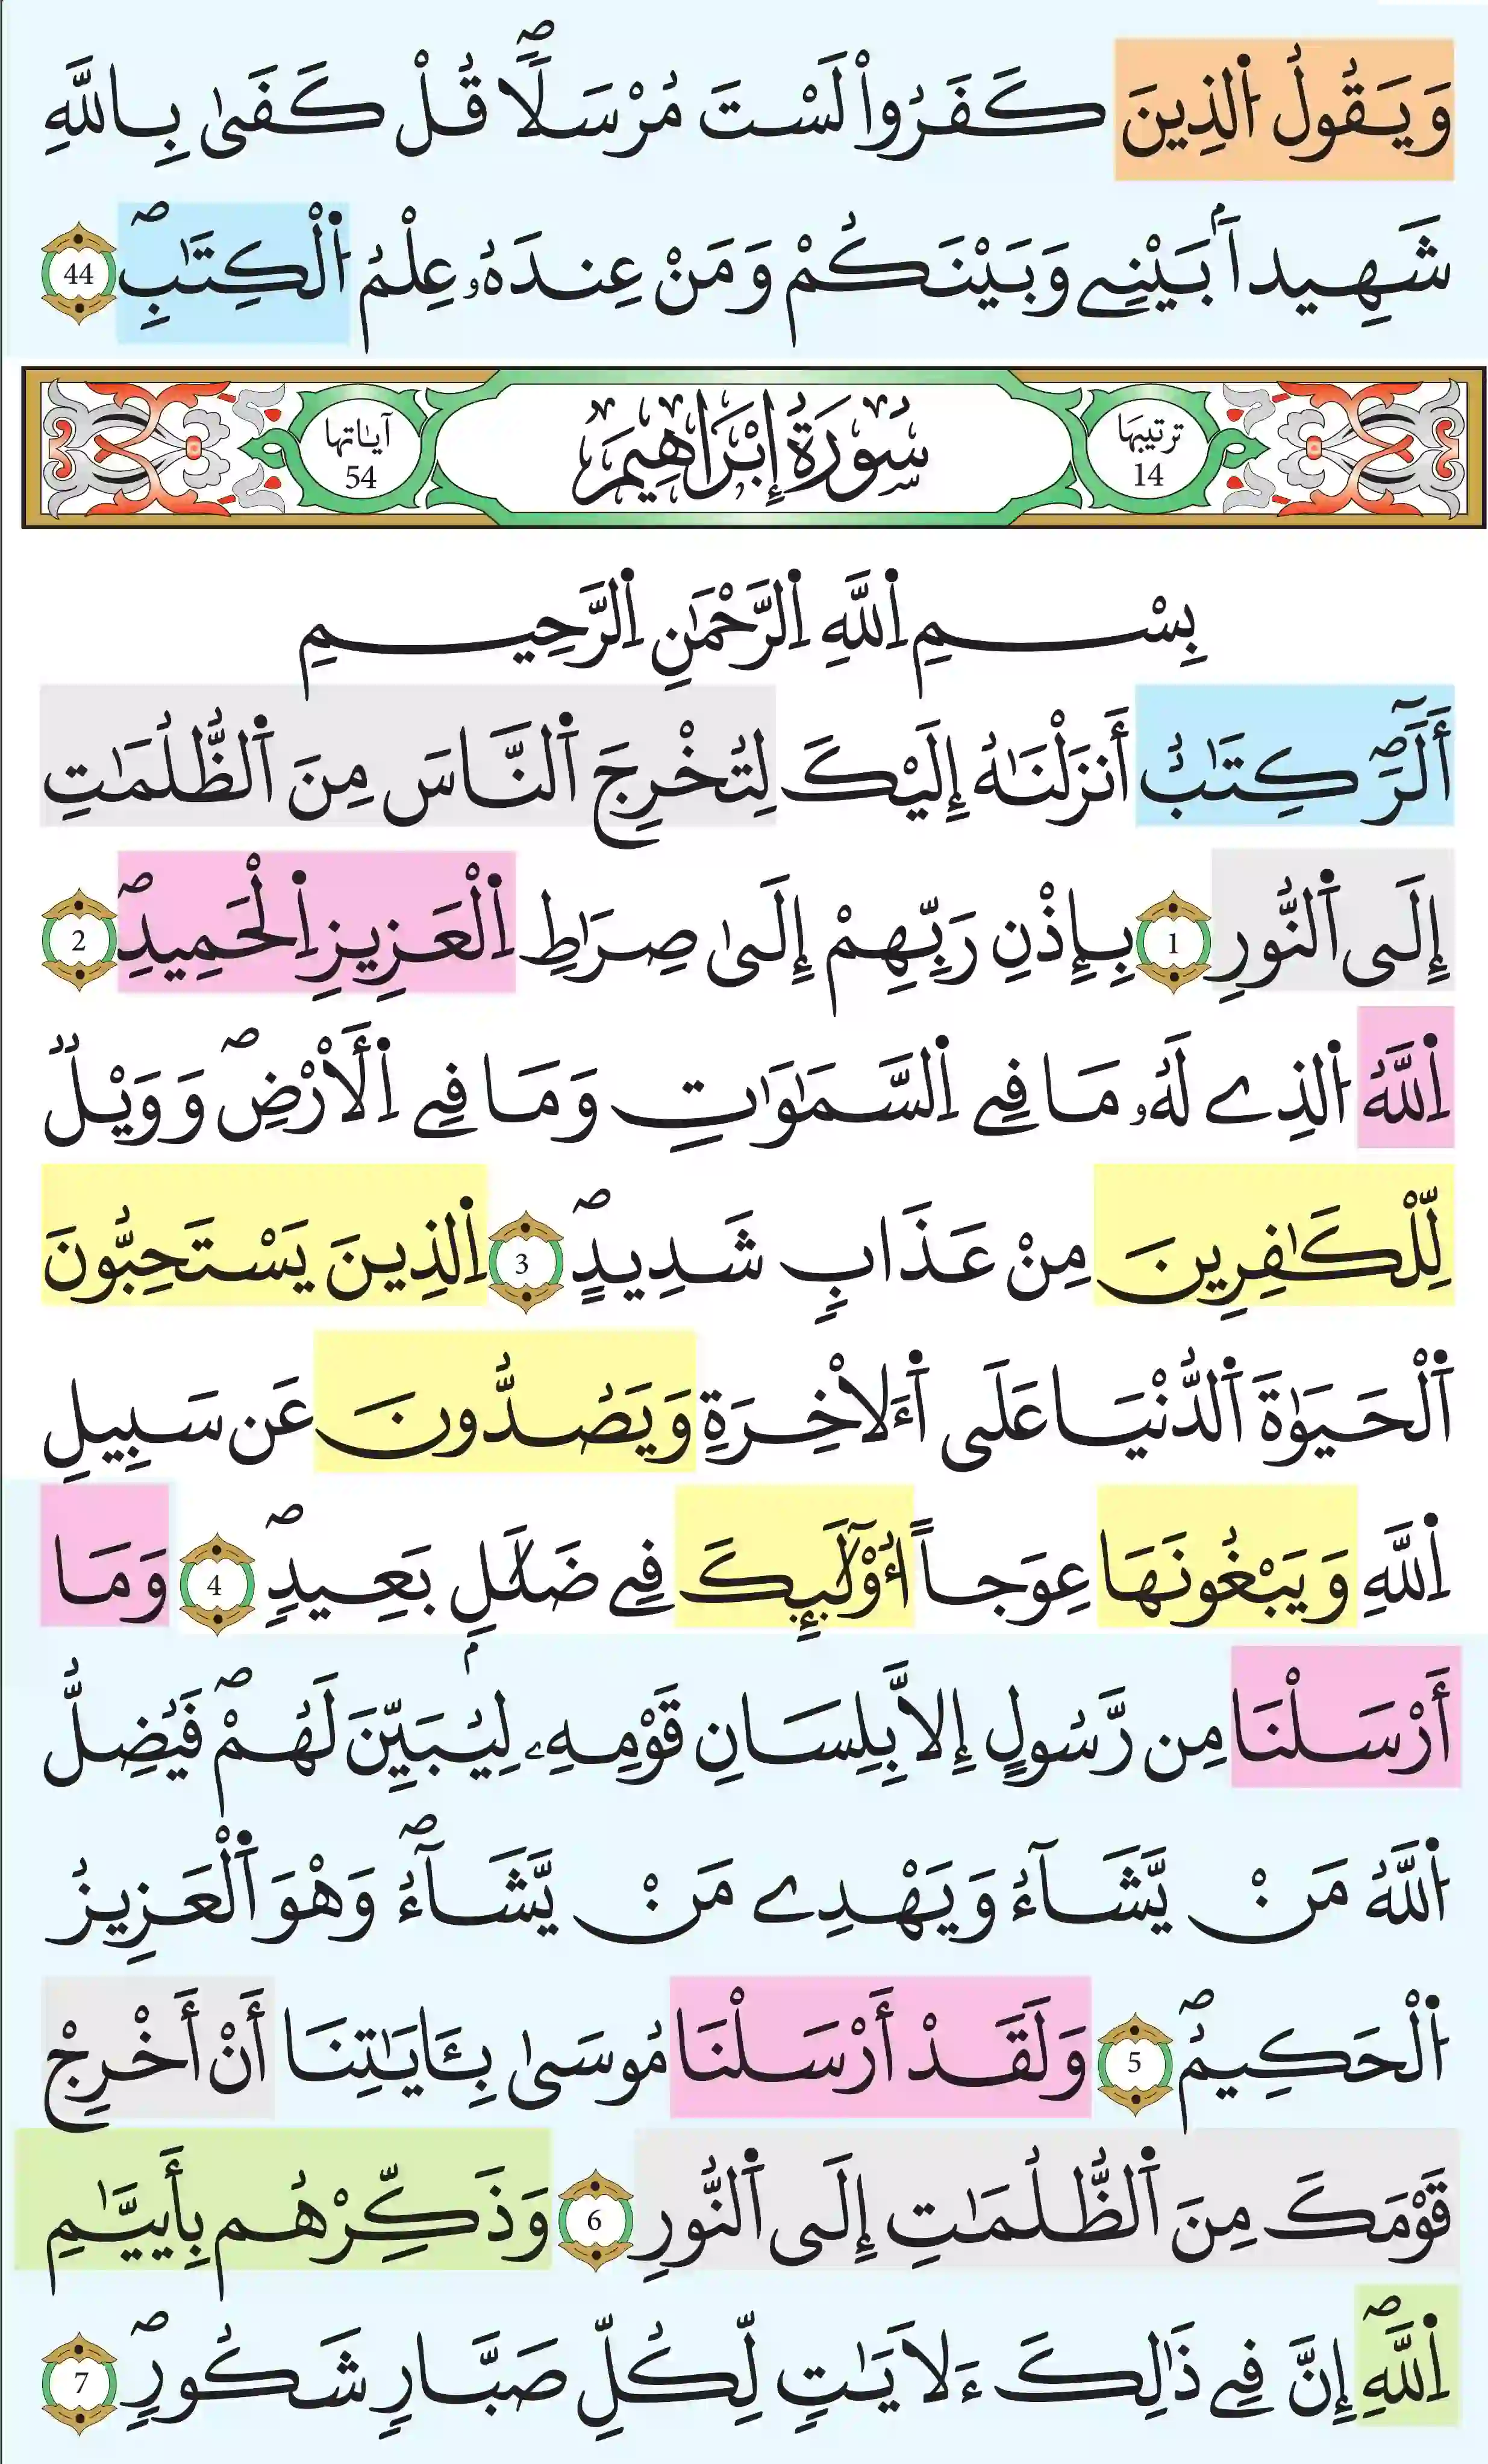 وَيَقُولُ اُ۬لذِينَ كَفَرُواْ لَسْتَ مُرْسَلاٗۖ قُلْ كَفَىٰ بِاللَّهِ
شَهِيداَۢ بَيْنِے وَبَيْنَكُمْ وَمَنْ عِندَهُۥ عِلْمُ اُ۬لْكِتَٰبِۖ 44
ترتيبها 14 سُورَةُ إِبْرَاهِيمَ آياتها 54
بِسْمِ اِ۬للَّهِ اِ۬لرَّحْمَٰنِ اِ۬لرَّحِيمِ
أَلَٓرَۖ كِتَٰبٌ أَنزَلْنَٰهُ إِلَيْكَ لِتُخْرِجَ اَ۬لنَّاسَ مِنَ اَ۬لظُّلُمَٰتِ
إِلَى اَ۬لنُّورِ 1 بِإِذْنِ رَبِّهِمْ إِلَىٰ صِرَٰطِ اِ۬لْعَزِيزِ اِ۬لْحَمِيدِۖ 2
اِ۬للَّهُ اُ۬لذِے لَهُۥ مَا فِے اِ۬لسَّمَٰوَٰتِ وَمَا فِے اِ۬لَارْضِۖ وَوَيْلٞ
لِّلْكَٰفِرِينَ مِنْ عَذَابٖ شَدِيدٍۖ 3 اِ۬لذِينَ يَسْتَحِبُّونَ
اَ۬لْحَيَوٰةَ اَ۬لدُّنْيَا عَلَى اَ۬ءَلَاخِرَةِ وَيَصُدُّونَ عَن سَبِيلِ
اِ۬للَّهِ وَيَبْغُونَهَا عِوَجاً ا۟وْلَٰٓئِكَ فِے ضَلَٰلِۢ بَعِيدٖۖ 4 وَمَا
أَرْسَلْنَا مِن رَّسُولٍ إِلَّا بِلِسَانِ قَوْمِهِۦ لِيُبَيِّنَ لَهُمْۖ فَيُضِلُّ
اُ۬للَّهُ مَنْ يَّشَآءُ وَيَهْدِے مَنْ يَّشَآءُۖ وَهْوَ اَ۬لْعَزِيزُ
اُ۬لْحَكِيمُۖ 5 وَلَقَدْ أَرْسَلْنَا مُوسَىٰ بِـَٔايَٰتِنَا أَنْ أَخْرِجْ
قَوْمَكَ مِنَ اَ۬لظُّلُمَٰتِ إِلَى اَ۬لنُّورِ 6 وَذَكِّرْهُم بِأَيَّيٰمِ
اِ۬للَّهِۖ إِنَّ فِے ذَٰلِكَ ءَلَايَٰتٖ لِّكُلِّ صَبَّارٖ شَكُورٖۖ 7